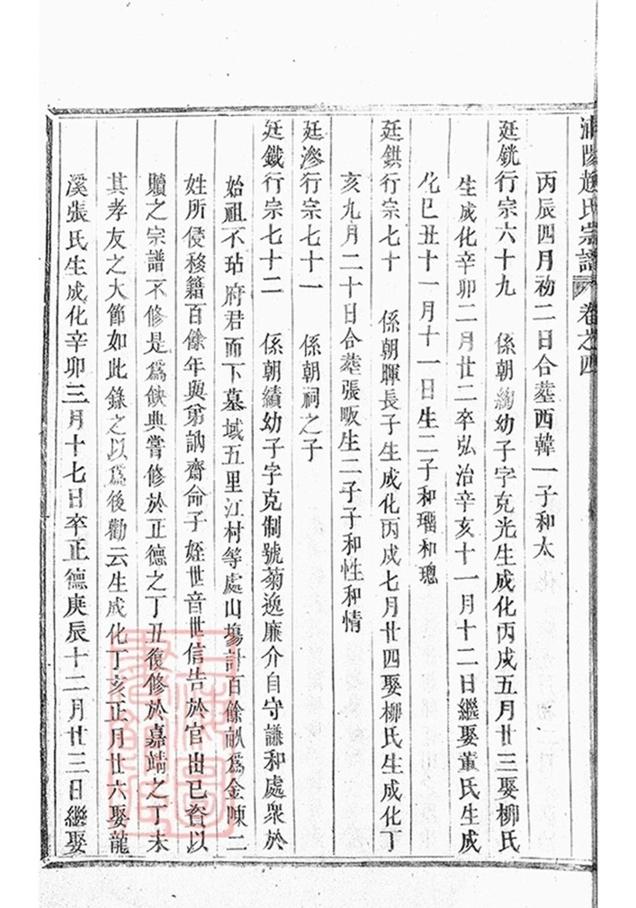 浦陽趙氏宗譜 卷之四
丙辰四月初二日合塟西韓一子和太
廷銑行宗六十九 係朝絢幼子字克光生成化丙戌五月廿三娶柳氏
生成化辛卯二月廿二卒弘治辛亥十一月十二日繼娶董氏生成
化巳丑十一月十一日生二子和瑙和璁
廷鉷行宗七十 係朝暉長子生成化丙戌七月廿四娶柳氏生成化丁
亥九月二十日合塟張畈生二子子和性和情
廷滲行宗七十一 係朝祠之子
廷鐵行宗七十二 係朝績幼子字克制號菊逸廉介自守謙和處衆於
始祖不玷府君而下墓域五里江村等處山塲計百餘畝爲金陳二
姓所侵移籍百餘年與弟訥齋命子姪世音世信告於官出已資以
贖之宗譜不修是爲缺典嘗修於正德之丁丑復修於嘉靖之丁未
其孝友之大節如此錄之以爲後勸云生成化丁亥正月廿六娶龍
溪張氏生成化辛卯三月十七日卒正德庚辰十二月廿三日繼娶